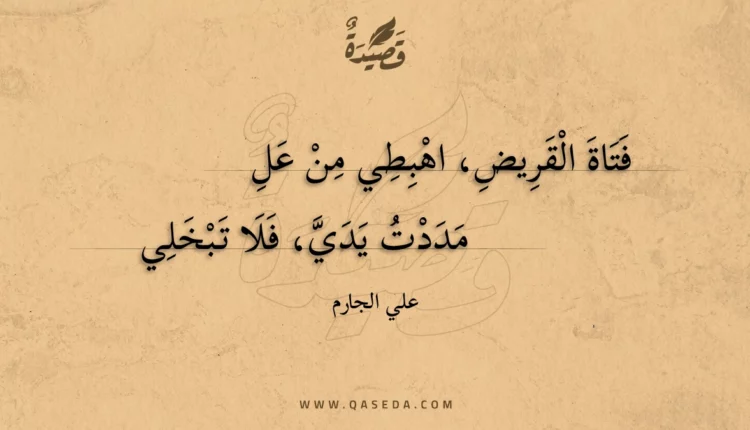 قَصِيْدَةٌ
فَتَاةَ الْقَرِيضِ، اهْبِطِي مِنْ عَلِ
مَدَدْتُ يَدَيَّ، فَلَا تَبْخَلِي
علي الجارم
WWW.QASEDA.COM